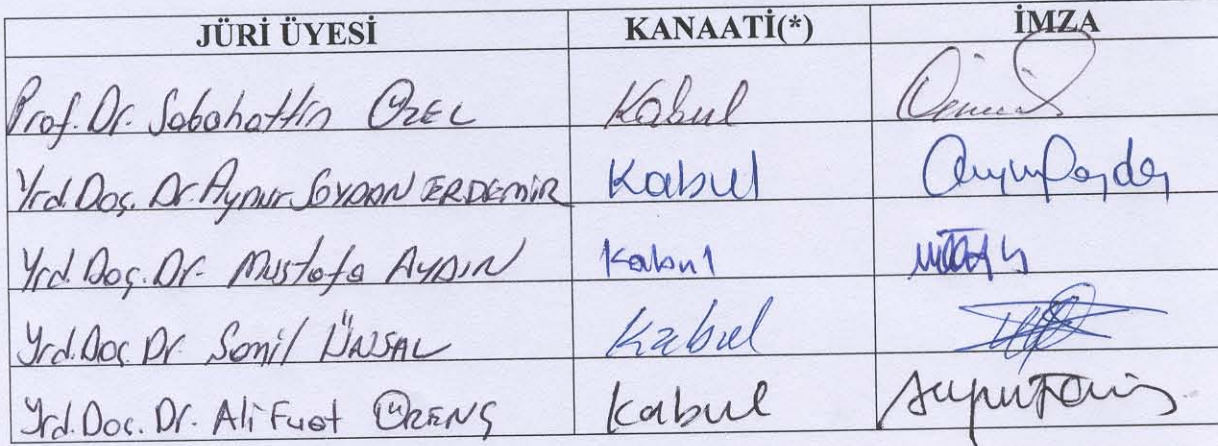 JÜRİ ÜYESİ KANAATİ(*) İMZA
Prof. Dr. Sabahattin ÖZEL Kabul
Yrd. Doç. Dr. Aynur SOYDAN ERDEMİR Kabul
Yrd. Doç. Dr. Mustafa AYDIN Kabul
Yrd. Doç. Dr. Samil ÜNSAL Kabul
Yrd. Doç. Dr. Ali Fuat ÖRENÇ Kabul